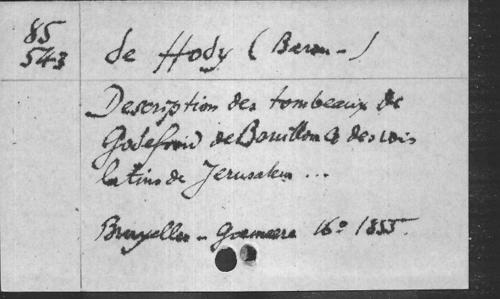 85
543
de Hody (Baron -)
Description des tombeaux de
Godefroid de Bouillon & des rois
latins de Jerusalem ...
Bruxelles - Goemaere 16º 1855.